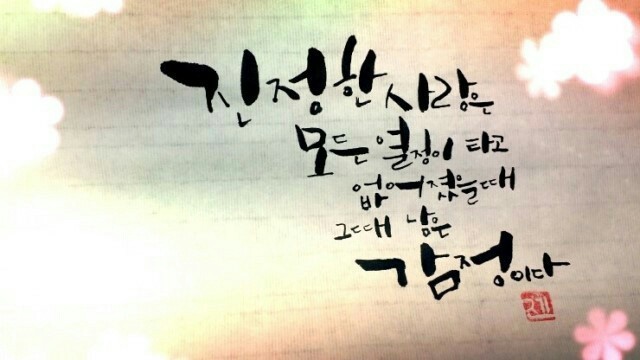 진정한 사랑은
모든 열정이 타고
없어졌을때
그때 남은
감정이다